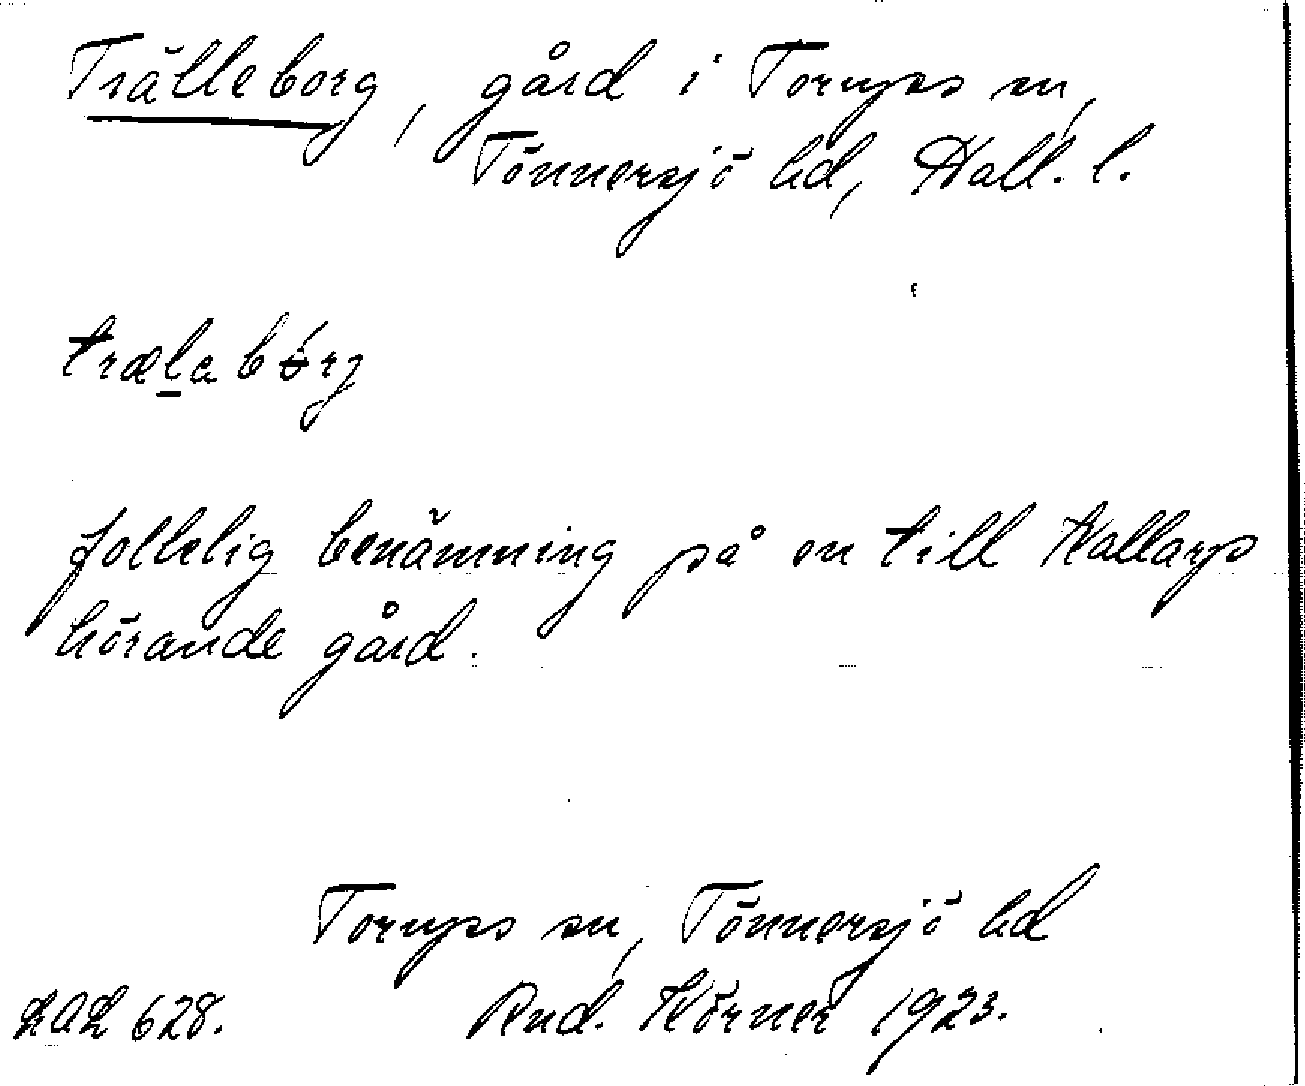 Trälleborg, gård i Torups sn,
Tönnersjö hd, Hall. l.
trælabórj
folklig benämning på en till Kallarps
hörande gård.
Torups sn, Tönnersjö hd
LAL 628. Rud. Körner 1923.